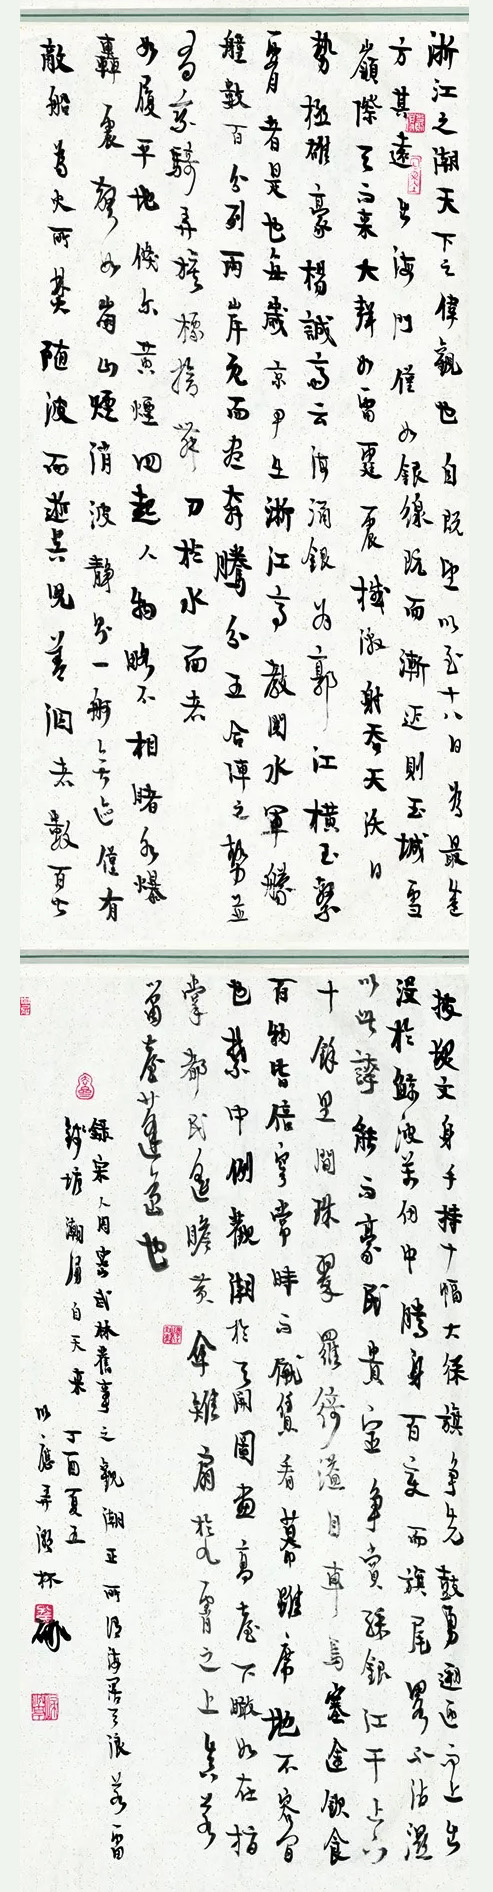 浙江之潮天下之偉觀也自既望以至十八日為最盛
方其遠出海門僅如銀線既而漸近則玉城雪
嶺際天而來大聲如雷霆震撼激射吞天沃日
勢極雄豪楊誠齋云海涌銀為郭江橫玉繫
腰者是也每歲京尹出浙江亭教閱水軍艨
艟數百分列兩岸既而盡奔騰分五合陣之勢並
有乘騎弄旗標槍舞刀於水面者
如履平地倏爾黃煙四起人物略不相睹水爆
轟震聲如崩山煙消波靜則一舸無迹僅有
敵船為火所焚隨波而逝吳兒善泅者數百皆
披髮文身手持十幅大綵旗爭先鼓勇溯迎而上出
沒於鯨波萬仞中騰身百變而旗尾略不沾濕
以此誇能而豪民貴宦爭賞綵銀江干上下
十餘里間珠翠羅綺溢目車馬塞途飲食
百物皆倍穹常時而僦賃看幕雖席地不容間
也禁中例觀潮於天開圖畫高臺下瞰如在指
掌都民遙瞻黃傘雉扇於九霄之上真若
簫臺蓬島也
錄宋人周密武林舊事之觀潮 所 海 天浪 若雷
錢塘潮 自天來 丁酉夏五
以應弄潮杯